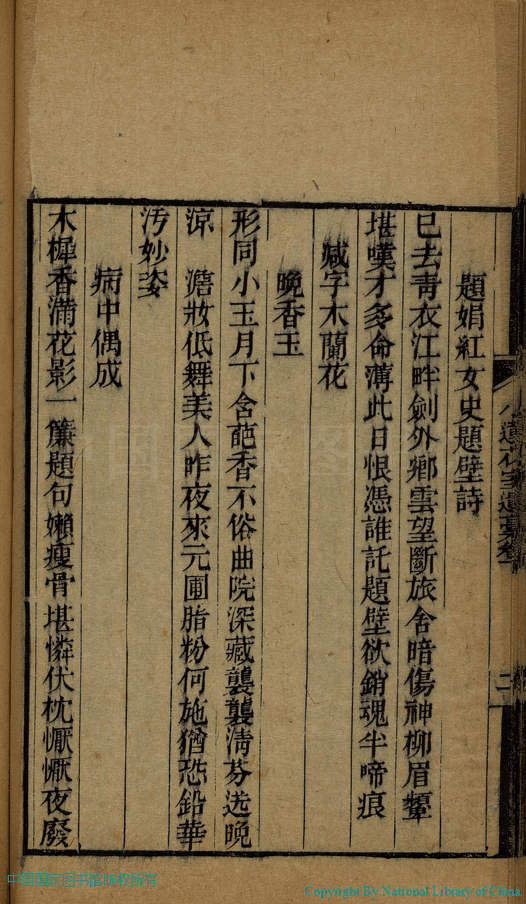 題娟紅女史題壁詩
已去青衣江畔劍外鄉雲望斷旅舍暗傷神柳眉顰
堪嘆才多命薄此日恨憑誰託題壁欲銷魂半啼痕
減字木蘭花
晚香玉
形同小玉月下含葩香不俗曲院深藏襲襲淸芬送晚
涼 澹妝低舞美人昨夜來元圃脂粉何施猶恐鉛華
汚妙姿
病中偶成
木樨香滿花影一簾題句嬾瘦骨堪憐伏枕懨懨夜廢
二
中国国家图书馆版权所有
Copyright By National Library of China